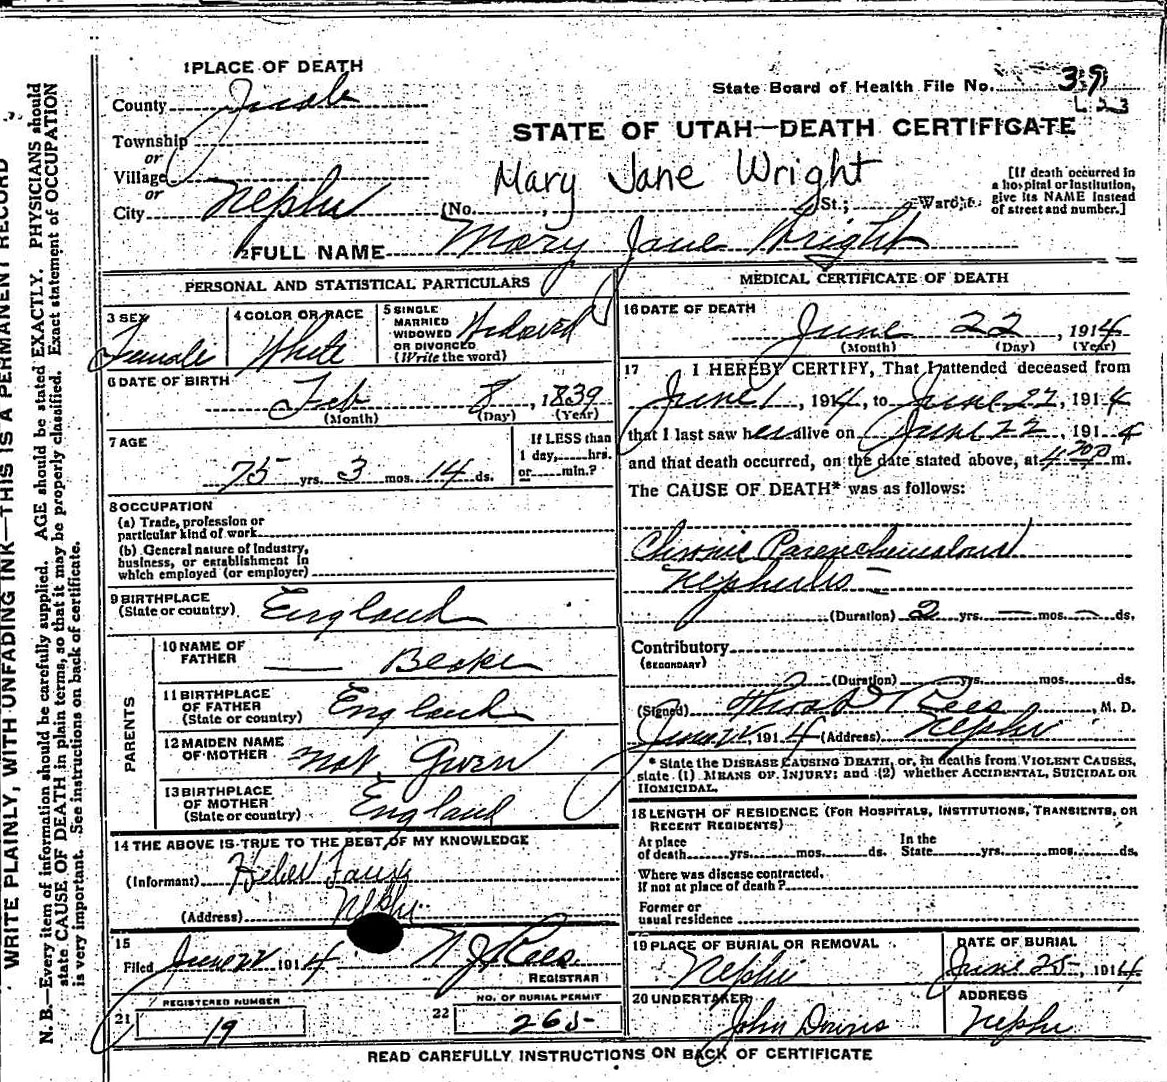 1 PLACE OF DEATH
County Juab
Township
or
Village
or
City Nephi
State Board of Health File No. 39
L 23
STATE OF UTAH—DEATH CERTIFICATE
Mary Jane Wright
(No. , St.; Ward;
[If death occurred in
a hospital or institution,
give its NAME instead
of street and number.]
2 FULL NAME Mary Jane Wright
PERSONAL AND STATISTICAL PARTICULARS
3 SEX
Female
4 COLOR OR RACE
White
5 SINGLE
MARRIED
WIDOWED
OR DIVORCED
(Write the word)
Widowed
6 DATE OF BIRTH
Feb 8, 1839
(Month) (Day) (Year)
7 AGE
75 yrs. 3 mos. 14 ds.
If LESS than
1 day, hrs.
or min.?
8 OCCUPATION
(a) Trade, profession or
particular kind of work
(b) General nature of Industry,
business, or establishment in
which employed (or employer)
9 BIRTHPLACE
(State or country)
England
PARENTS
10 NAME OF
FATHER
11 BIRTHPLACE
OF FATHER
(State or country)
England
12 MAIDEN NAME
OF MOTHER
not Given
13 BIRTHPLACE
OF MOTHER
(State or country)
England
14 THE ABOVE IS TRUE TO THE BEST OF MY KNOWLEDGE
(Informant) Heber
(Address) Nephi
15
Filed June 22 1914
Rees
REGISTRAR
21
REGISTERED NUMBER
19
22
NO. OF BURIAL PERMIT
265
MEDICAL CERTIFICATE OF DEATH
16 DATE OF DEATH
June 22, 1914
(Month) (Day) (Year)
17 I HEREBY CERTIFY, That I attended deceased from
June 1, 1914, to June 22, 1914
that I last saw her alive on June 22, 1914
and that death occurred, on the date stated above, at 4 30 P m.
The CAUSE OF DEATH* was as follows:
Chronic
Nephritis
(Duration) 2 yrs. — mos. — ds.
Contributory
(SECONDARY)
(Duration) yrs. mos. ds.
(Signed) Rees, M. D.
June 22, 1914 (Address) Nephi
* State the DISEASE CAUSING DEATH, or, in deaths from VIOLENT CAUSES,
state (1) MEANS OF INJURY; and (2) whether ACCIDENTAL, SUICIDAL OR
HOMICIDAL.
18 LENGTH OF RESIDENCE (FOR HOSPITALS, INSTITUTIONS, TRANSIENTS, OR
RECENT RESIDENTS)
At place
of death yrs. mos. ds.
In the
State yrs. mos. ds.
Where was disease contracted,
if not at place of death?
Former or
usual residence
19 PLACE OF BURIAL OR REMOVAL
Nephi
DATE OF BURIAL
June 25, 1914
20 UNDERTAKER
John
ADDRESS
Nephi
READ CAREFULLY INSTRUCTIONS ON BACK OF CERTIFICATE
WRITE PLAINLY, WITH UNFADING INK—THIS IS A PERMANENT RECORD
N. B.—Every item of information should be carefully supplied. AGE should be stated EXACTLY. PHYSICIANS should
state CAUSE OF DEATH in plain terms, so that it may be properly classified. Exact statement of OCCUPATION
is very important. See instructions on back of certificate.